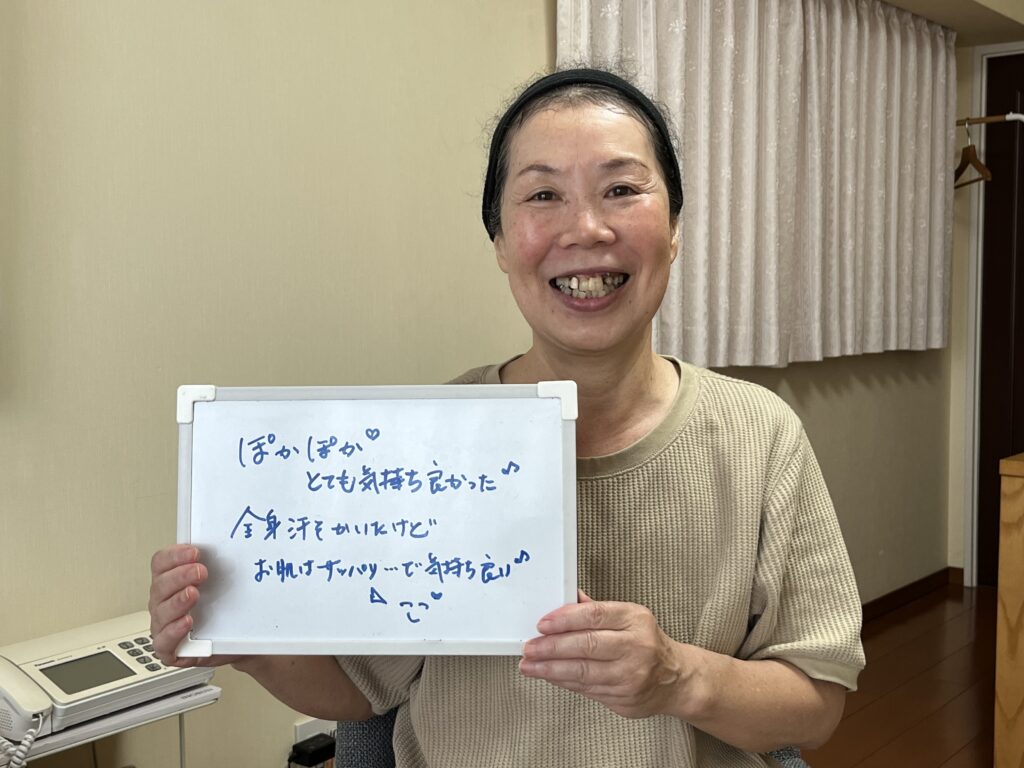 ぽかぽか♡
とても気持ち良かった♪
全身汗をかいたけど
お肌はサッパリ…で気持ち良い♪
Panasonic